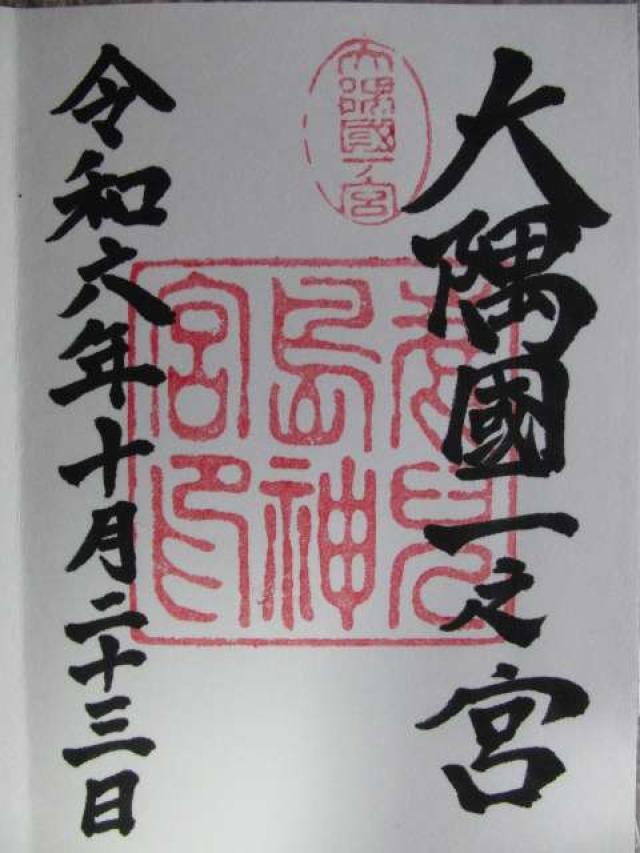 大隅國一之宮
大隅國一ノ宮
鹿兒
島神
宮印
令和六年十月二十三日